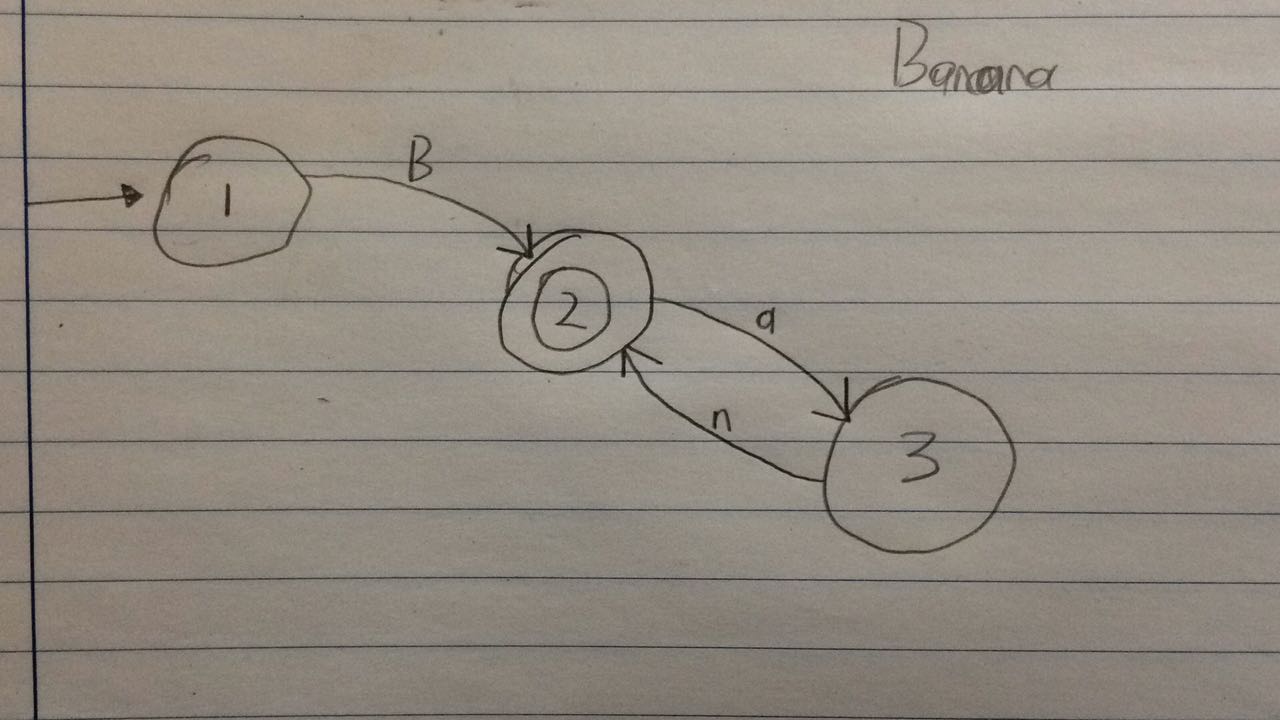 Banana
B
1
2
a
n
3